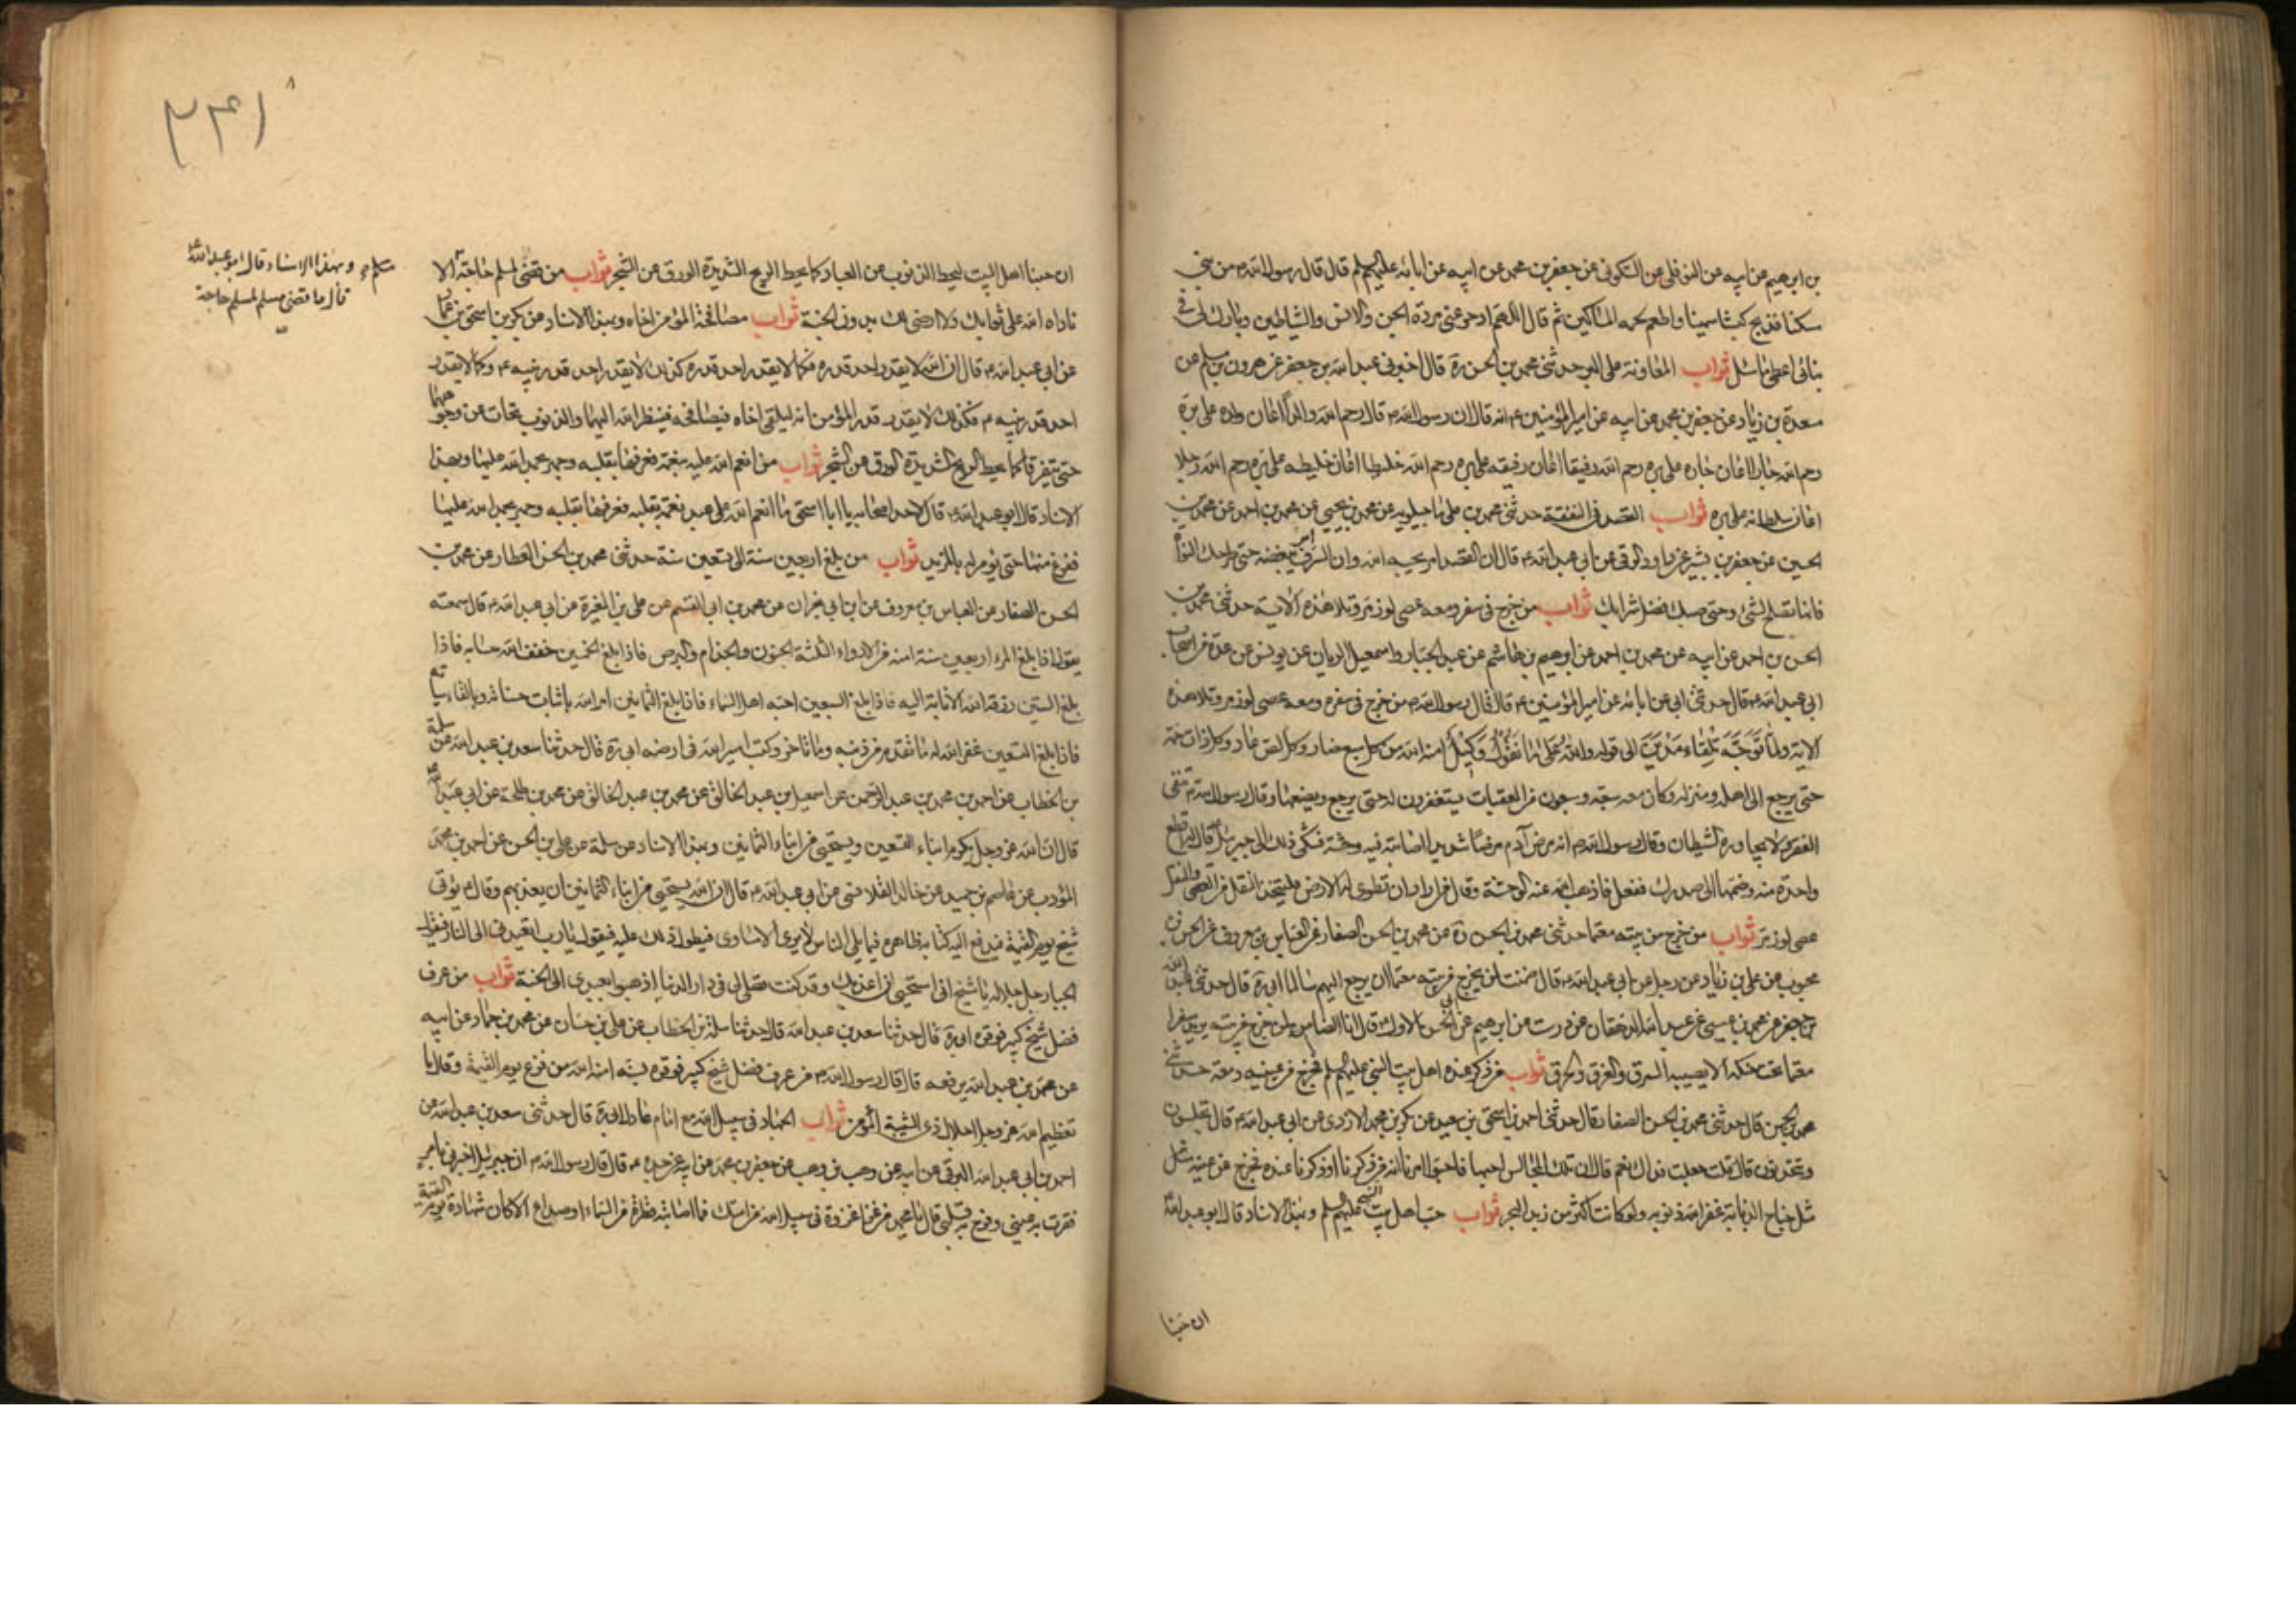 بن ابرهيم عن ابيه عن النوفلى عن السكونى عن جعفر بن محمد عن ابيه عن ابائه عليهم السلم قال قال رسول الله ص من بنى
مسكنا فذبح كبشا سمينا واطعم لحمه المساكين ثم قال اللهم ادحر عنى مردة الجن والانس والشياطين وبارك لى فى
بنائى اعطى ما سئل ثواب المعاونة على البر حدثنى محمد بن الحسن ره قال اخبرنى عبد الله بن جعفر عن هرون بن مسلم عن
مسعدة بن زياد عن جعفر بن محمد عن ابيه عن امير المؤمنين ع انه قال ان رسول الله ص قال رحم الله والدا اعان ولده على بره
رحم الله جارا اعان جاره على بره رحم الله رفيقا اعان رفيقه على بره رحم الله خليطا اعان خليطه على بره رحم الله رجلا
اعان سلطانه على بره ثواب القصد فى النفقة حدثنى محمد بن على ماجيلويه عن محمد بن يحيى عن محمد بن احمد عن محمد بن
الحسين عن جعفر بن بشير عن داود الرقى عن ابى عبد الله ع قال ان القصد امر يحبه الله وان السرف امر يبغضه حتى طرحك النواة
فانها تصلح لشئ وحتى صبك فضل شرابك ثواب من خرج فى سفر ومعه عصى لوز مر وتلا هذه الاية حدثنى محمد بن
الحسن بن احمد عن ابيه عن محمد بن احمد عن ابرهيم بن هاشم عن عبد الجبار واسمعيل الريان عن يونس عن عدة من اصحاب
ابى عبد الله ع قال حدثنى ابى عن ابائه عن امير المؤمنين ع قال قال رسول الله ص من خرج فى سفره ومعه عصى لوز مر وتلا هذه
الاية ولما توجه تلقاء مدين الى قوله والله على ما نقول وكيل امنه الله من كل سبع ضار وكل لص عاد وكل ذات حمة
حتى يرجع الى اهله ومنزله وكان معه سبعة وسبعون من المعقبات يستغفرون له حتى يرجع ويضعها وقال رسول الله ص تنفى
الفقر ولا يجاوره الشيطان وقال رسول الله ص انه مرض آدم مرضا شديدا اصابته فيه وحشة فشكى ذلك الى جبرئيل ع قال له اقطع
واحدة منه وضمها الى صدرك ففعل فاذهب الله عنه الوحشة وقال من اراد ان تطوى له الارض فليتخذ النقد من العصى والنقد
عصى لوز مر ثواب من خرج من بيته معتما حدثنى محمد بن الحسن ره عن محمد بن الحسن الصفار عن العباس بن معروف عن الحسن بن
محبوب عن على بن زياد عن رجل عن ابى عبد الله ع قال ضمنت لمن يخرج من بيته معتما ان يرجع اليهم سالما ابى ره قال حدثنى عبد الله
بن جعفر عن محمد بن عيسى عن عبيد الله الدهقان عن درست عن ابرهيم عن ابى الحسن الاول ع قال انا الضامن لمن خرج من بيته يريد سفرا
معتما تحت حنكه الا يصيبه السرق والغرق والحرق ثواب من ذكر عنده اهل بيت النبى عليهم السلم فخرج من عينيه دمعة حدثنى
محمد بن الحسن قال حدثنى محمد بن الحسن الصفار قال حدثنى احمد بن اسحق بن سعيد عن بكر بن محمد الازدى عن ابى عبد الله ع قال تجلسون
وتحدثون قال قلت جعلت فداك نعم قال ان تلك المجالس احبها فاحيوا امرنا انه من ذكرنا او ذكرنا عنده فخرج من عينه مثل
مثل جناح الذبابة غفر الله ذنوبه ولو كانت اكثر من زبد البحر ثواب حب اهل بيت النبى عليهم السلم وبهذا الاسناد قال ابو عبد الله ع
ان حبنا
٣٤١
ان حبنا اهل البيت ليحط الذنوب عن العباد كما يحط الريح الشديدة الورق عن الشجر ثواب من قضى لمسلم حاجته الا
ناداه الله على ثوابك ولا ارضى لك بدون الجنة ثواب مصافحة المؤمن اخاه وبهذا الاسناد عن بكر بن اسحق بن عمار
عن ابى عبد الله ع قال ان الله لا يقدر احد قدره فكما لا يقدر احد قدره كذلك لا يقدر احد قدر نبيه ع وكما لا يقدر
احد قدر نبيه ع فكذلك لا يقدر قدر المؤمن انه ليلقى اخاه فيصافحه فينظر الله اليهما والذنوب تحات عن وجوههما
حتى يتفرقا كما يحط الريح الشديدة الورق عن الشجر ثواب من انعم الله عليه بنعمة فعرفها بقلبه وحمد بحمد الله عليها وبهذا
الاسناد قال ابو عبد الله ع قال لاحد اصحابه يا ابا اسحق ما انعم الله على عبد نعمة بقلبه فعرفها بقلبه وحمد بحمد الله عليها
ففرغ منها حتى يؤمر له بالمزيد ثواب من بلغ اربعين سنة الى تسعين سنة حدثنى محمد بن الحسن العطار عن محمد بن
الحسن الصفار عن العباس بن معروف عن ابن ابى نجران عن محمد بن ابى القسم عن على بن المغيرة عن ابى عبد الله ع قال سمعته
يقول اذا بلغ المرء اربعين سنة امنه من الادواء الثلثة الجنون والجذام والبرص فاذا بلغ الخمسين خفف الله حسابه فاذا
بلغ الستين رزقه الله الانابة اليه فاذا بلغ السبعين احبه اهل السماء فاذا بلغ الثمانين امر الله باثبات حسناته وبالقاء سيئاته
فاذا بلغ التسعين غفر الله له ما تقدم من ذنبه وما تاخر وكتب اسير الله فى ارضه ابى ره قال حدثنا سعد بن عبد الله عن سلمة
بن الخطاب عن احمد بن محمد بن عبد الرحمن عن اسمعيل بن عبد الخالق عن محمد بن عبد الخالق عن محمد بن طلحة عن ابى عبد الله ع
قال ان الله عز وجل يكرم ابناء التسعين ويستحيى من ابناء الثمانين وبهذا الاسناد عن سلمة عن على بن الحسن عن احمد بن محمد
المؤدب عن عاصم بن حميد عن خالد القلانسى عن ابى عبد الله ع قال ان الله يستحيى من ابناء الثمانين ان يعذبهم وقال ع يؤتى
شيخ يوم القيمة فيدفع اليه كتابه ظاهره فيما يلى الناس لا يرى الا مساوى فيطول ذلك عليه فيقول يا رب اتعيدنى الى النار فيقول
الجبار جل جلاله يا شيخ انى استحيى ان اعذبك وقد كنت تصلى لى فى دار الدنيا اذهبوا بعبدى الى الجنة ثواب من عرف
فضل شيخ كبير فوقره ابى ره قال حدثنا سعد بن عبد الله قال حدثنا سلمة بن الخطاب عن على بن حسان عن محمد بن حماد عن ابيه
عن محمد بن عبد الله يرفعه قال قال رسول الله ص من عرف فضل شيخ كبير فوقره لسنه امنه الله من فزع يوم القيمة وقال يا
تعظيم الله عز وجل اجلال ذى الشيبة المؤمن ثواب الجهاد فى سبيل الله مع امام عادل ابى ره قال حدثنى سعد بن عبد الله عن
احمد بن ابى عبد الله البرقى عن ابيه عن وهب بن وهب عن جعفر بن محمد عن ابيه عن جده ع قال قال رسول الله ص ان جبرئيل اخبرنى بامر
فقرت به عينى وفرح به قلبى قال يا محمد من غزا غزوة فى سبيل الله من امتك فما اصابته قطرة من السماء او صداع الا كان شهادة يوم القيمة
مسلم ع وبهذا الاسناد قال ابو عبد الله ع
قال ما قضى مسلم لمسلم حاجة